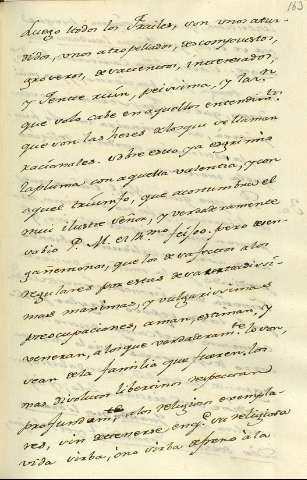 163
Luego todos los Frailes, son unos atur-
didos, unos atropellados, descompuestos,
groseros, desatentos, interesados,
y Gente ruin, pesima, y tal,
que solo cabe en aquellos entendim.tos
que son las heces de los que se llaman
racionales. sobre esto ya esgrimio
la pluma con aquella valentia, y con
aquel triunfo, que acostumbra el
mui ilustre señor, y verdaderamente
sabio P. M. el R.mo feijoo. pero desen-
gañemonos, que los desafectos a los
regulares por estas
mas maximas, y vulgarissimas
preocupaciones, aman, estiman, y
veneran, a los que verdaderam.te lo son,
sean de la familia que fueren, los
mas disolutos libertinos respectaran
profundam.te a los religiosos exempla-
res, sin detenerse en q.e su religiosa
vida sirba, o no sirba de freno à la